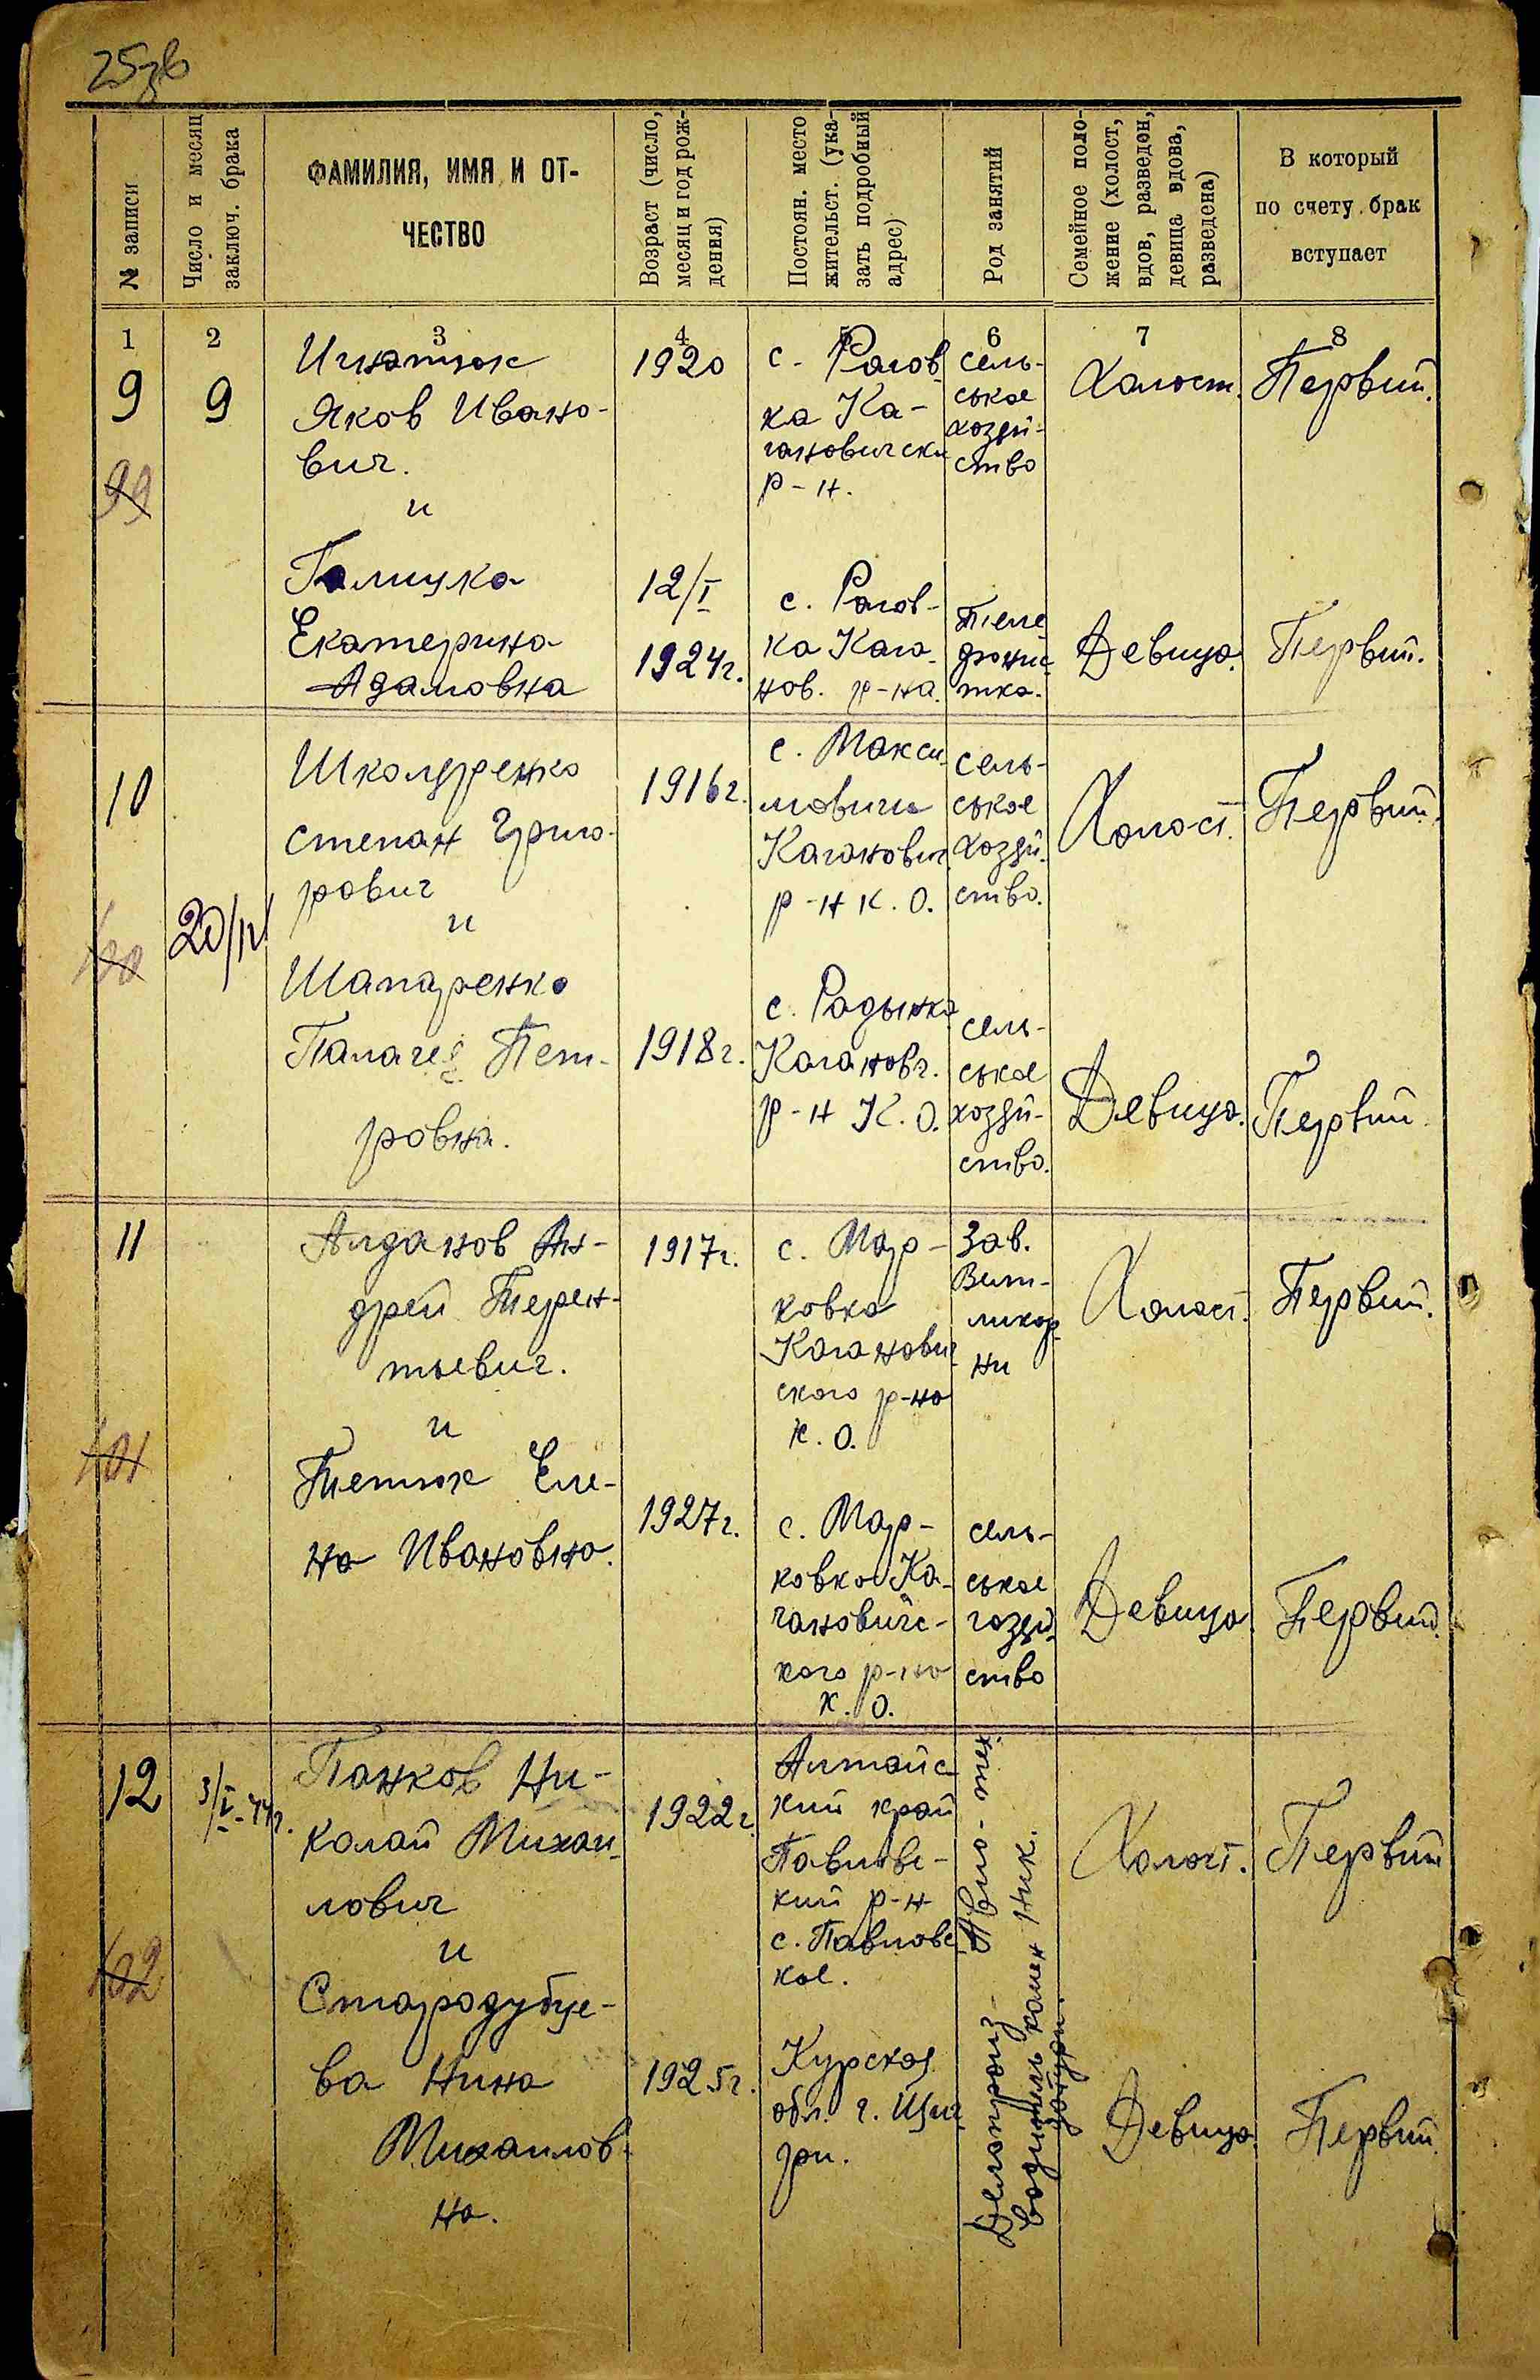 25зв
№ записи
Число и месяц
заключ. брака
ФАМИЛИЯ, ИМЯ И ОТ-
ЧЕСТВО
Возраст (число,
месяц и год рож-
дения)
Постоян. место
жительст. (ука-
зать подробный
адрес)
Род занятий
Семейное поло-
жение (холост,
вдов, разведен,
девица вдова,
разведена)
В который
по счету брак
вступает
1 2 3 4 5 6 7 8
9
99
9
Игнатюк
Яков Ивано-
вич.
и
1920
с. Рагов
ка Ка-
гановичски
р-н.
сель-
ськое
хозяй-
ство
Халост.
Первый.
Галицка
Екатерина
Адамовна
12/I
1924г.
с. Рагов-
ка Кага-
нов. р-на.
Теле
фонис-
тка.
Девица.
Первый.
10
100
20/IV
Школуренко
Степан Григо-
рович
и
1916г.
с. Макси
мовичи
Каганович
р-н К.О.
сель-
ськое
хозяй-
ство.
Холост.
Первый.
Шапаренко
Палагея Пет-
ровна.
1918г.
с. Радынка
Кагановг.
р-н К.О.
сель-
ськое
хозяй-
ство.
Девица.
Первый.
11
101
Алданов Ан-
дрей Терен-
тьевич.
и
1917г.
с. Мар-
ковка
Каганович
ского р-на
К.О.
Зав.
Вит-
ликар
ни
Холост.
Первый.
Тетюк Еле-
на Ивановна.
1927г.
с. Мар-
ковка Ка-
гановичс-
кого р-на
К.О.
сель-
ськое
гозяй-
ство
Девица.
Первый.
12
102
3/I-44г.
Панков Ни-
колай Михаи-
лович
и
1922г.
Алтайс-
кий край
Павловс-
кий р-н
с. Павловс
кое.
Авио-тех
ник.
Холост.
Первый
Стародубце-
ва Нина
Михаилов-
на.
1925г.
Курская
обл. г. Щиг
ри.
Делопроиз-
водитель комен
датури.
Девица.
Первый.